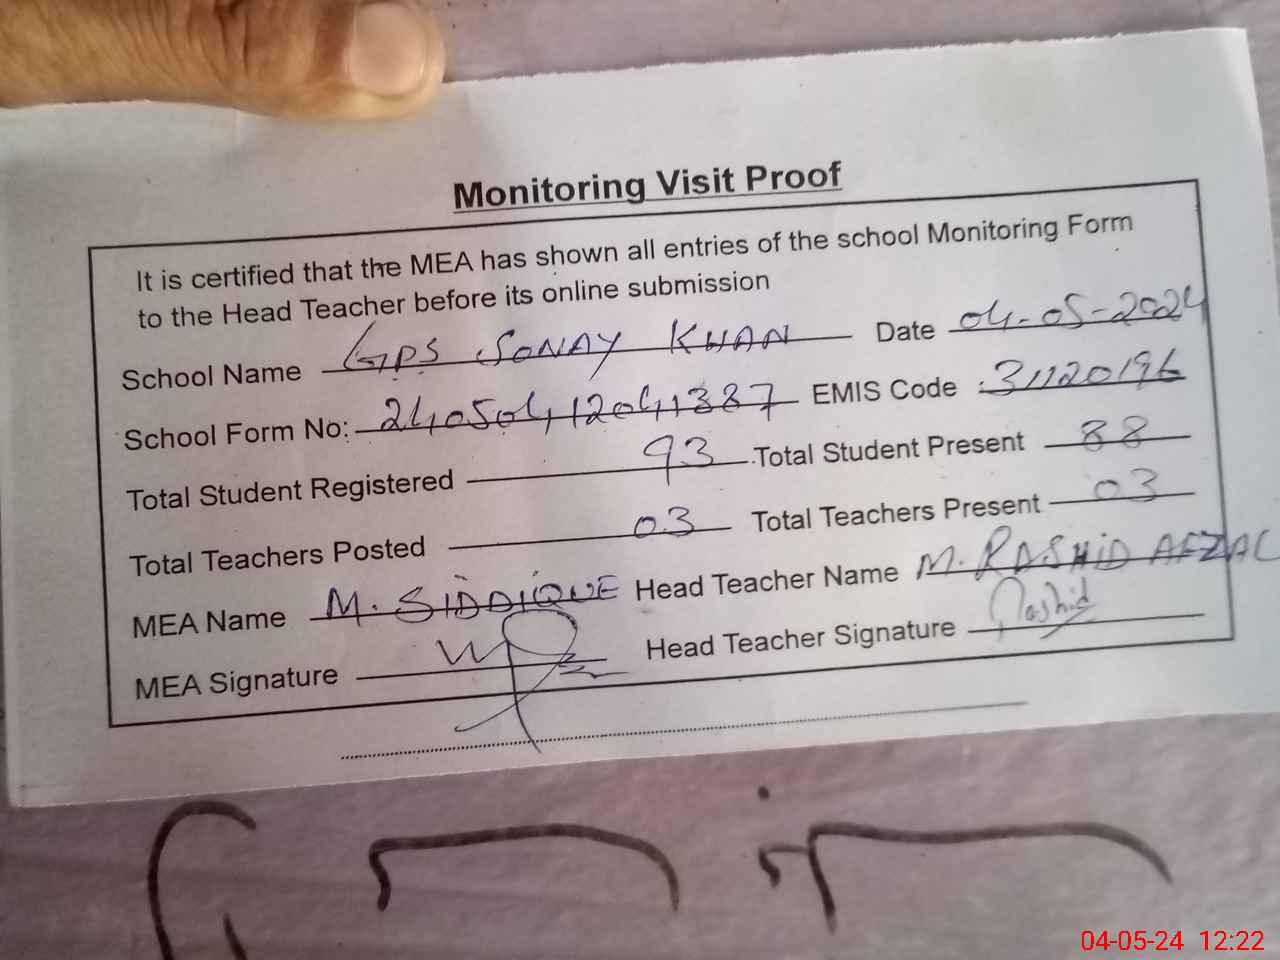 Monitoring Visit Proof
It is certified that the MEA has shown all entries of the school Monitoring Form
to the Head Teacher before its online submission
School Name GPS SONAY KHAN Date 04-05-2024
School Form No: 24050412041387 EMIS Code :31120196
Total Student Registered 93 Total Student Present 88
Total Teachers Posted 03 Total Teachers Present 03
MEA Name M. SIDDIQUE Head Teacher Name M. RASHID AFZAL
MEA Signature Head Teacher Signature Rashid
04-05-24 12:22